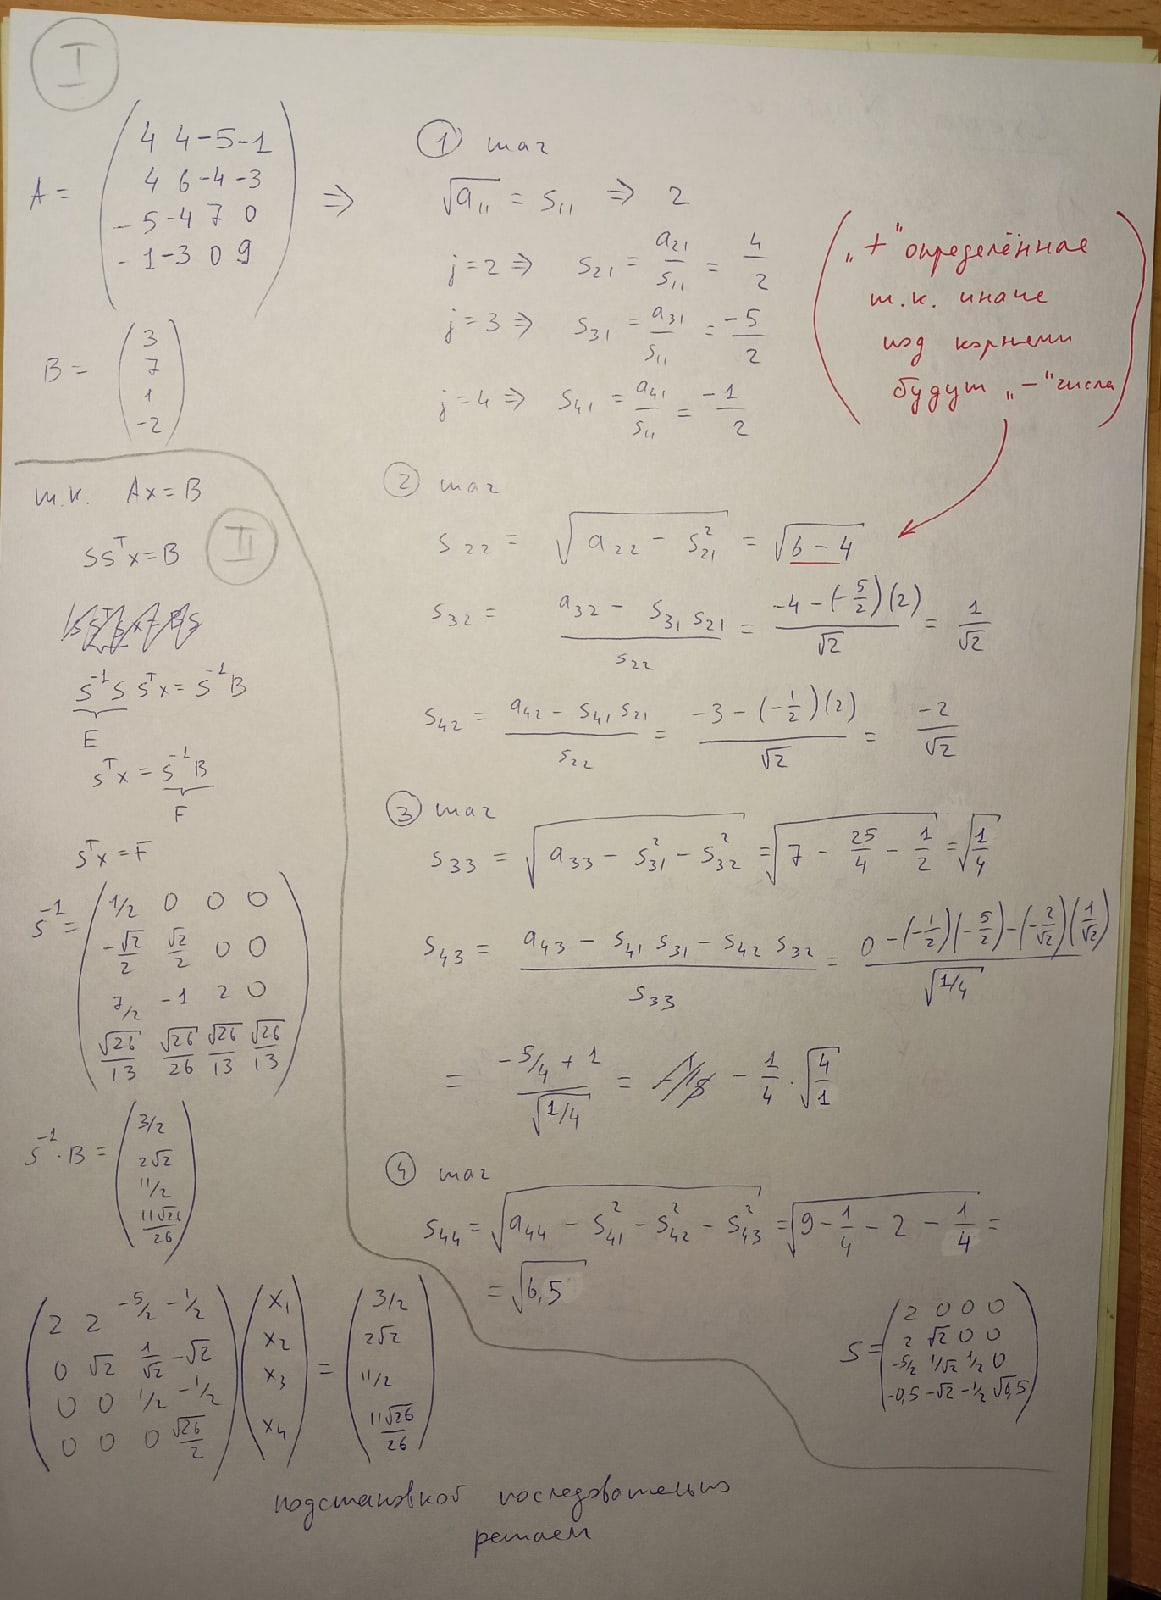 I
A = ( 4 4 -5 -1
4 6 -4 -3
-5 -4 7 0
-1 -3 0 9 ) ⇒
B = ( 3
7
1
-2 )
① шаг
√a₁₁ = s₁₁ ⇒ 2
j=2 ⇒ s₂₁ = a₂₁/s₁₁ = 4/2
j=3 ⇒ s₃₁ = a₃₁/s₁₁ = -5/2
j=4 ⇒ s₄₁ = a₄₁/s₁₁ = -1/2
( „+" определённая
т.к. иначе
под корнями
будут „-" числа )
② шаг
s₂₂ = √(a₂₂ - s₂₁²) = √(6-4)
s₃₂ = (a₃₂ - s₃₁ s₂₁)/s₂₂ = (-4-(-5/2)(2))/√2 = 1/√2
s₄₂ = (a₄₂ - s₄₁ s₂₁)/s₂₂ = (-3-(-1/2)(2))/√2 = -2/√2
③ шаг
s₃₃ = √(a₃₃ - s₃₁² - s₃₂²) = √(7 - 25/4 - 1/2) = √(1/4)
s₄₃ = (a₄₃ - s₄₁ s₃₁ - s₄₂ s₃₂)/s₃₃ = (0-(-1/2)(-5/2)-(-2/√2)(1/√2))/√(1/4)
= (-5/4 + 1)/√(1/4) = - 1/4 · √(4/1)
④ шаг
s₄₄ = √(a₄₄ - s₄₁² - s₄₂² - s₄₃²) = √(9 - 1/4 - 2 - 1/4) =
= √6,5
S = ( 2 0 0 0
2 √2 0 0
-5/2 1/√2 1/2 0
-0,5 -√2 -1/2 √6,5 )
II
т.к. Ax = B
SSᵀx = B
S⁻¹S Sᵀx = S⁻¹B
E
Sᵀx = S⁻¹B
F
Sᵀx = F
S⁻¹ = ( 1/2 0 0 0
-√2/2 √2/2 0 0
7/2 -1 2 0
√26/13 √26/26 √26/13 √26/13 )
S⁻¹·B = ( 3/2
2√2
11/2
11√26/26 )
( 2 2 -5/2 -1/2 ) ( x₁ ) = ( 3/2 )
( 0 √2 1/√2 -√2 ) ( x₂ ) ( 2√2 )
( 0 0 1/2 -1/2 ) ( x₃ ) ( 11/2 )
( 0 0 0 √26/2 ) ( x₄ ) ( 11√26/26 )
подстановкой последовательно
решаем